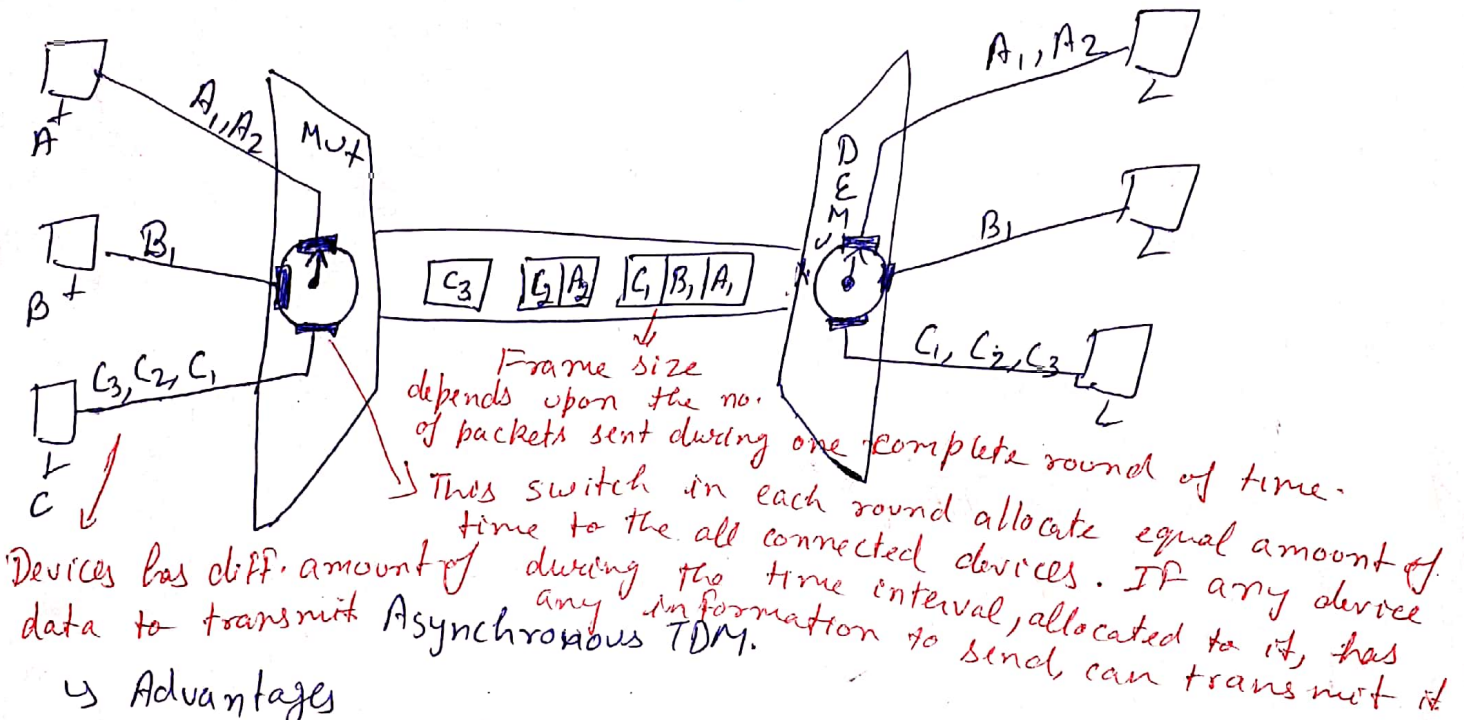 A
A1, A2
MUX
B
B1
C
C3, C2, C1
C3
C2 A2
C1 B1 A1
DEMU
A1, A2
B1
C1, C2, C3
Frame size
depends upon the no.
of packets sent during one complete round of time.
This switch in each round allocate equal amount of
time to the all connected devices. If any device
during the time interval, allocated to it, has
any information to send, can transmit it
Devices has diff. amount of
data to transmit
Asynchronous TDM.
↳ Advantages